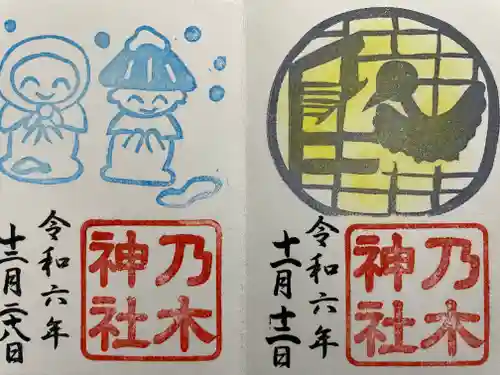 令和六年
十二月二八日
乃木
神社
令和六年
十一月十二日
乃木
神社